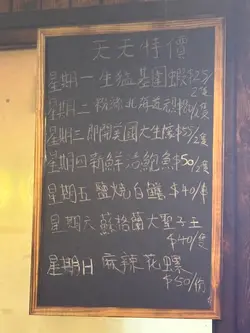 天天特價
星期一 生猛基圍蝦$25/
2隻
星期二
2隻
星期三 即開美國大生蠔
星期四 新鮮活鮑魚$50/2隻
星期五 鹽燒白鱔 $40/
星期六 蘇格蘭大聖子王
$40/隻
星期日 麻辣花螺
$50/